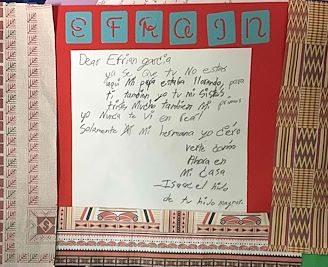 EFRAIN
Dear Efrian garcia
ya se que tu No estas
aqui Mi papa estaba llorando, para
ti tambien yo tu mi sister
triste Mucho tambien Mi primos
yo Nunca te vi en real
Solamente Mi hermana yo
verte
Ahora en
Mi casa
-Isaac el hijo
de tu hijo mayor.